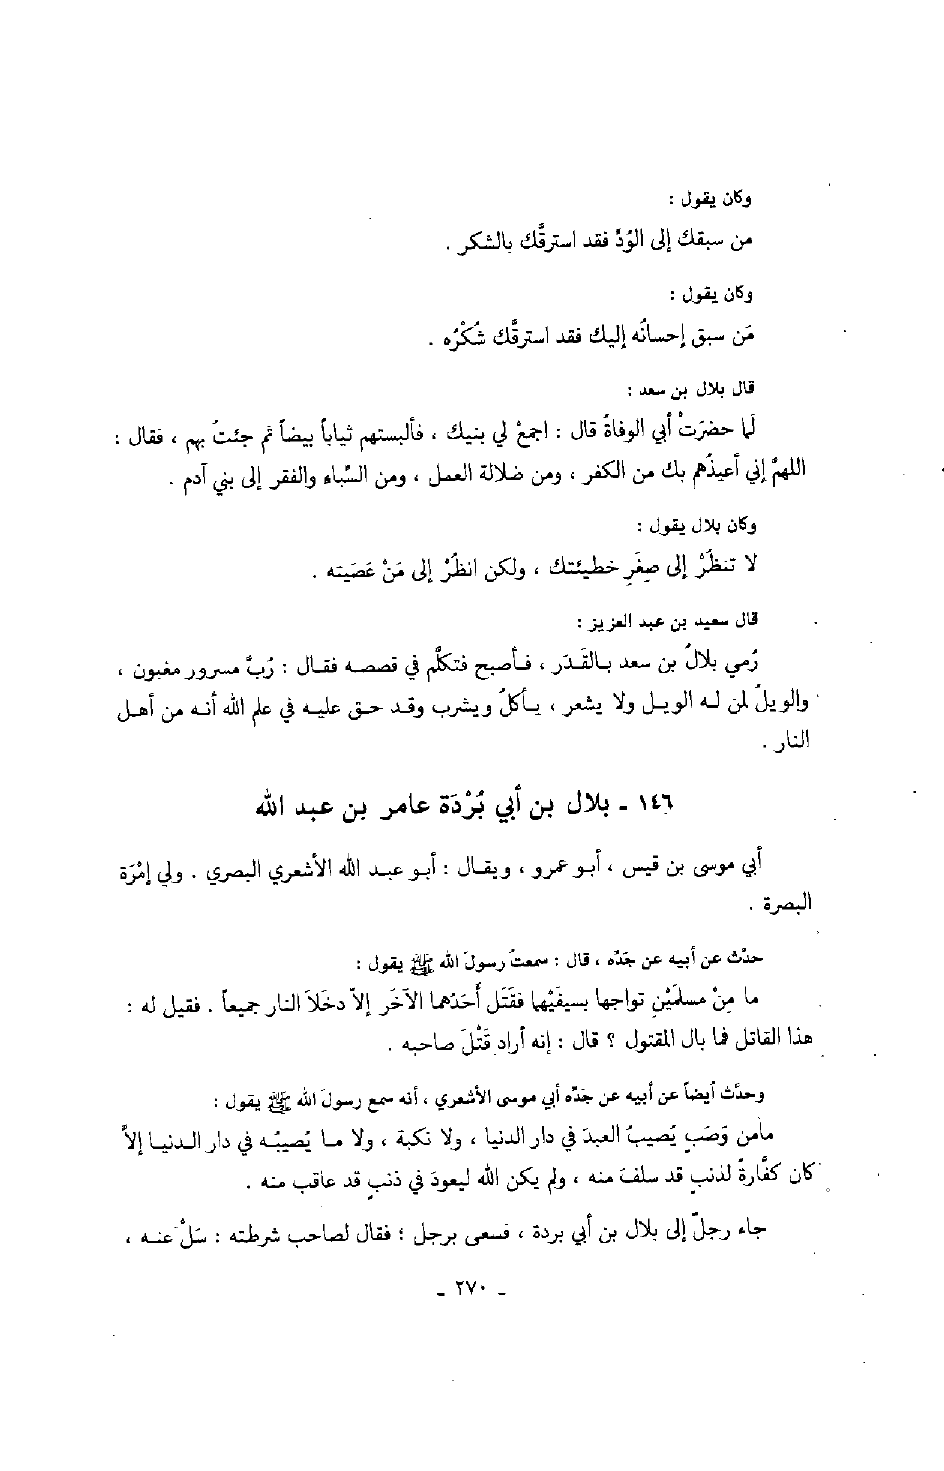 وكان يقول :
من سبقك إلى الوُدّ فقد استرقَّك بالشكر .
وكان يقول :
مَن سبق إحسانُه إليك فقد استرقَّك شُكْرُه .
قال بلال بن سعد :
لما حضرَتْ أبي الوفاةُ قال : اجمعْ لي بنيك ، فألبستهم ثياباً بيضاً ثم جئتُ بهم ، فقال :
اللهمَّ إني أعيذُهم بك من الكفر ، ومن ضلالة العمل ، ومن السِّباء والفقر إلى بني آدم .
وكان بلال يقول :
لا تنظُرْ إلى صِغَرِ خطيئتك ، ولكن انظُرْ إلى مَنْ عَصَيته .
قال سعيد بن عبد العزيز :
رُمي بلالُ بن سعد بالقَدَر ، فأصبح فتكلَّم في قصصه فقال : رُبَّ مسرور مغبون ،
والويلُ لمن له الويل ولا يشعر ، يأكلُ ويشرب وقد حق عليه في علم الله أنه من أهل
النار .
١٤٦ - بلال بن أبي بُرْدَة عامر بن عبد الله
أبي موسى بن قيس ، أبو عمرو ، ويقال : أبو عبد الله الأشعري البصري . ولي إمْرَة
البصرة .
حدّث عن أبيه عن جَدّه ، قال : سمعتُ رسولَ الله ﷺ يقول :
ما مِنْ مسلمَيْنِ تواجها بسيفَيْها فقَتَل أَحَدُهما الآخَر إلاّ دخَلاَ النار جميعاً . فقيل له :
هذا القاتل فما بال المقتول ؟ قال : إنه أراد قَتْلَ صاحبه .
وحدّث أيضاً عن أبيه عن جَدّه أبي موسى الأشعري ، أنه سمع رسولَ الله ﷺ يقول :
مامن وَصَبٍ يُصيبُ العبدَ في دار الدنيا ، ولا نكبة ، ولا ما يُصيبُه في دار الدنيا إلاَّ
كان كفَّارةً لذنبٍ قد سلفَ منه ، ولم يكن الله ليعودَ في ذنبٍ قد عاقب منه .
جاء رجلٌ إلى بلال بن أبي بردة ، فسعى برجل ؛ فقال لصاحب شرطته : سَلْ عنه ،
- ٢٧٠ -